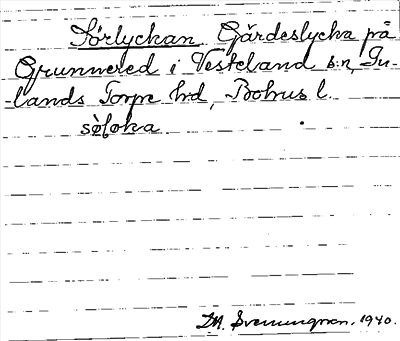 Sörlyckan Gärdeslycka på
Grunnered i Vesteland s:n, In-
-lands Torpe hd, Bohus l.
sö̀ḷoka
DA. Svenningson. 1940.